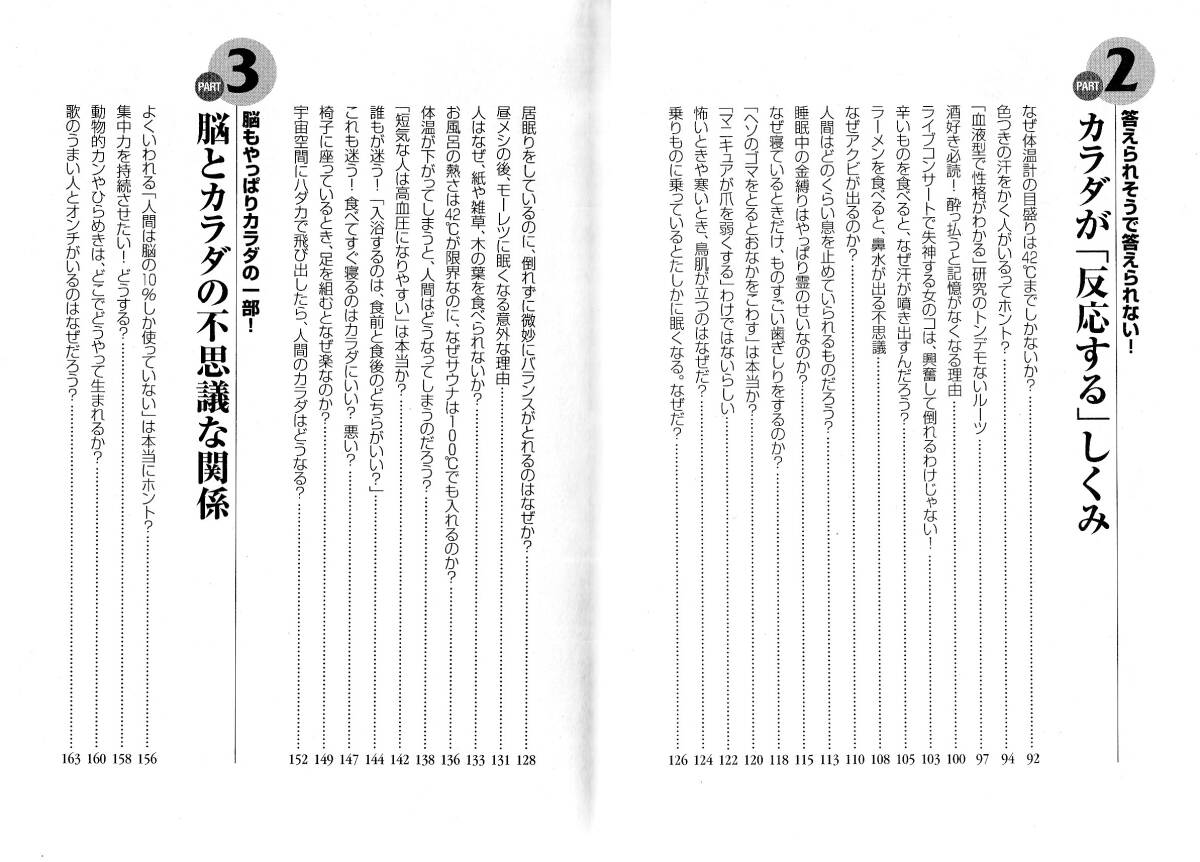 PART 2
答えられそうで答えられない！
カラダが「反応する」しくみ
なぜ体温計の目盛りは42℃までしかないか？ 92
色つきの汗をかく人がいるってホント？ 94
「血液型で性格がわかる」研究のトンデモないルーツ 97
酒好き必読！酔っ払うと記憶がなくなる理由 100
ライブコンサートで失神する女のコは、興奮して倒れるわけじゃない！ 103
辛いものを食べると、なぜ汗が噴き出すんだろう？ 105
ラーメンを食べると、鼻水が出る不思議 108
なぜアクビが出るのか？ 110
人間はどのくらい息を止めていられるものだろう？ 113
睡眠中の金縛りはやっぱり霊のせいなのか？ 115
なぜ寝ているときだけ、ものすごい歯ぎしりをするのか？ 118
「ヘソのゴマをとるとおなかをこわす」は本当か？ 120
「マニキュアが爪を弱くする」わけではないらしい 122
怖いときや寒いとき、鳥肌が立つのはなぜだ？ 124
乗りものに乗っているとたしかに眠くなる。なぜだ？ 126
居眠りをしているのに、倒れずに微妙にバランスがとれるのはなぜか？ 128
昼メシの後、モーレツに眠くなる意外な理由 131
人はなぜ、紙や雑草、木の葉を食べられないか？ 133
お風呂の熱さは42℃が限界なのに、なぜサウナは100℃でも入れるのか？ 136
体温が下がってしまうと、人間はどうなってしまうのだろう？ 138
「短気な人は高血圧になりやすい」は本当か？ 142
誰もが迷う！「入浴するのは、食前と食後のどちらがいい？」 144
これも迷う！食べてすぐ寝るのはカラダにいい？悪い？ 147
椅子に座っているとき、足を組むとなぜ楽なのか？ 149
宇宙空間にハダカで飛び出したら、人間のカラダはどうなる？ 152
PART 3
脳もやっぱりカラダの一部！
脳とカラダの不思議な関係
よくいわれる「人間は脳の10％しか使っていない」は本当にホント？ 156
集中力を持続させたい！どうする？ 158
動物的カンやひらめきは、どこでどうやって生まれるか？ 160
歌のうまい人とオンチがいるのはなぜだろう？ 163